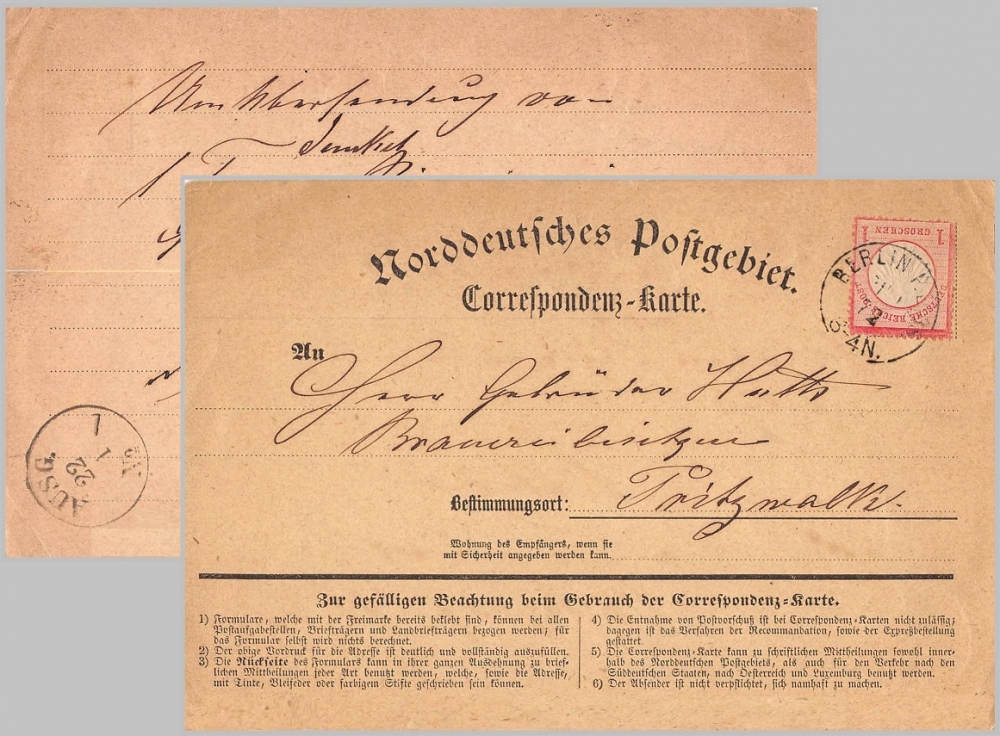 Um Übersendung von
Norddeutsches Postgebiet.
Correspondenz-Karte.
1 GROSCHEN 1
DEUTSCHE REICHS-POST
BERLIN
72
3-4N.
An
Herrn Gebrüder Huth
Brauereibesitzer
Bestimmungsort: Pritzwalk.
Wohnung des Empfängers, wenn sie
mit Sicherheit angegeben werden kann.
AUSG
No
22
1
1
Zur gefälligen Beachtung beim Gebrauch der Correspondenz-Karte.
1) Formulare, welche mit der Freimarke bereits beklebt sind, können bei allen
Postaufgabestellen, Briefträgern und Landbriefträgern bezogen werden; für
das Formular selbst wird nichts berechnet.
2) Der obige Vordruck für die Adresse ist deutlich und vollständig auszufüllen.
3) Die Rückseite des Formulars kann in ihrer ganzen Ausdehnung zu brief-
lichen Mittheilungen jeder Art benutzt werden, welche, sowie die Adresse,
mit Tinte, Bleifeder oder farbigen Stifte geschrieben sein können.
4) Die Entnahme von Postvorschuß ist bei Correspondenz-Karten nicht zulässig;
dagegen ist das Verfahren der Recommandation, sowie der Expreßbestellung
gestattet.
5) Die Correspondenz-Karte kann zu schriftlichen Mittheilungen sowohl inner-
halb des Norddeutschen Postgebiets, als auch für den Verkehr nach den
Süddeutschen Staaten, nach Oesterreich und Luxemburg benutzt werden.
6) Der Absender ist nicht verpflichtet, sich namhaft zu machen.